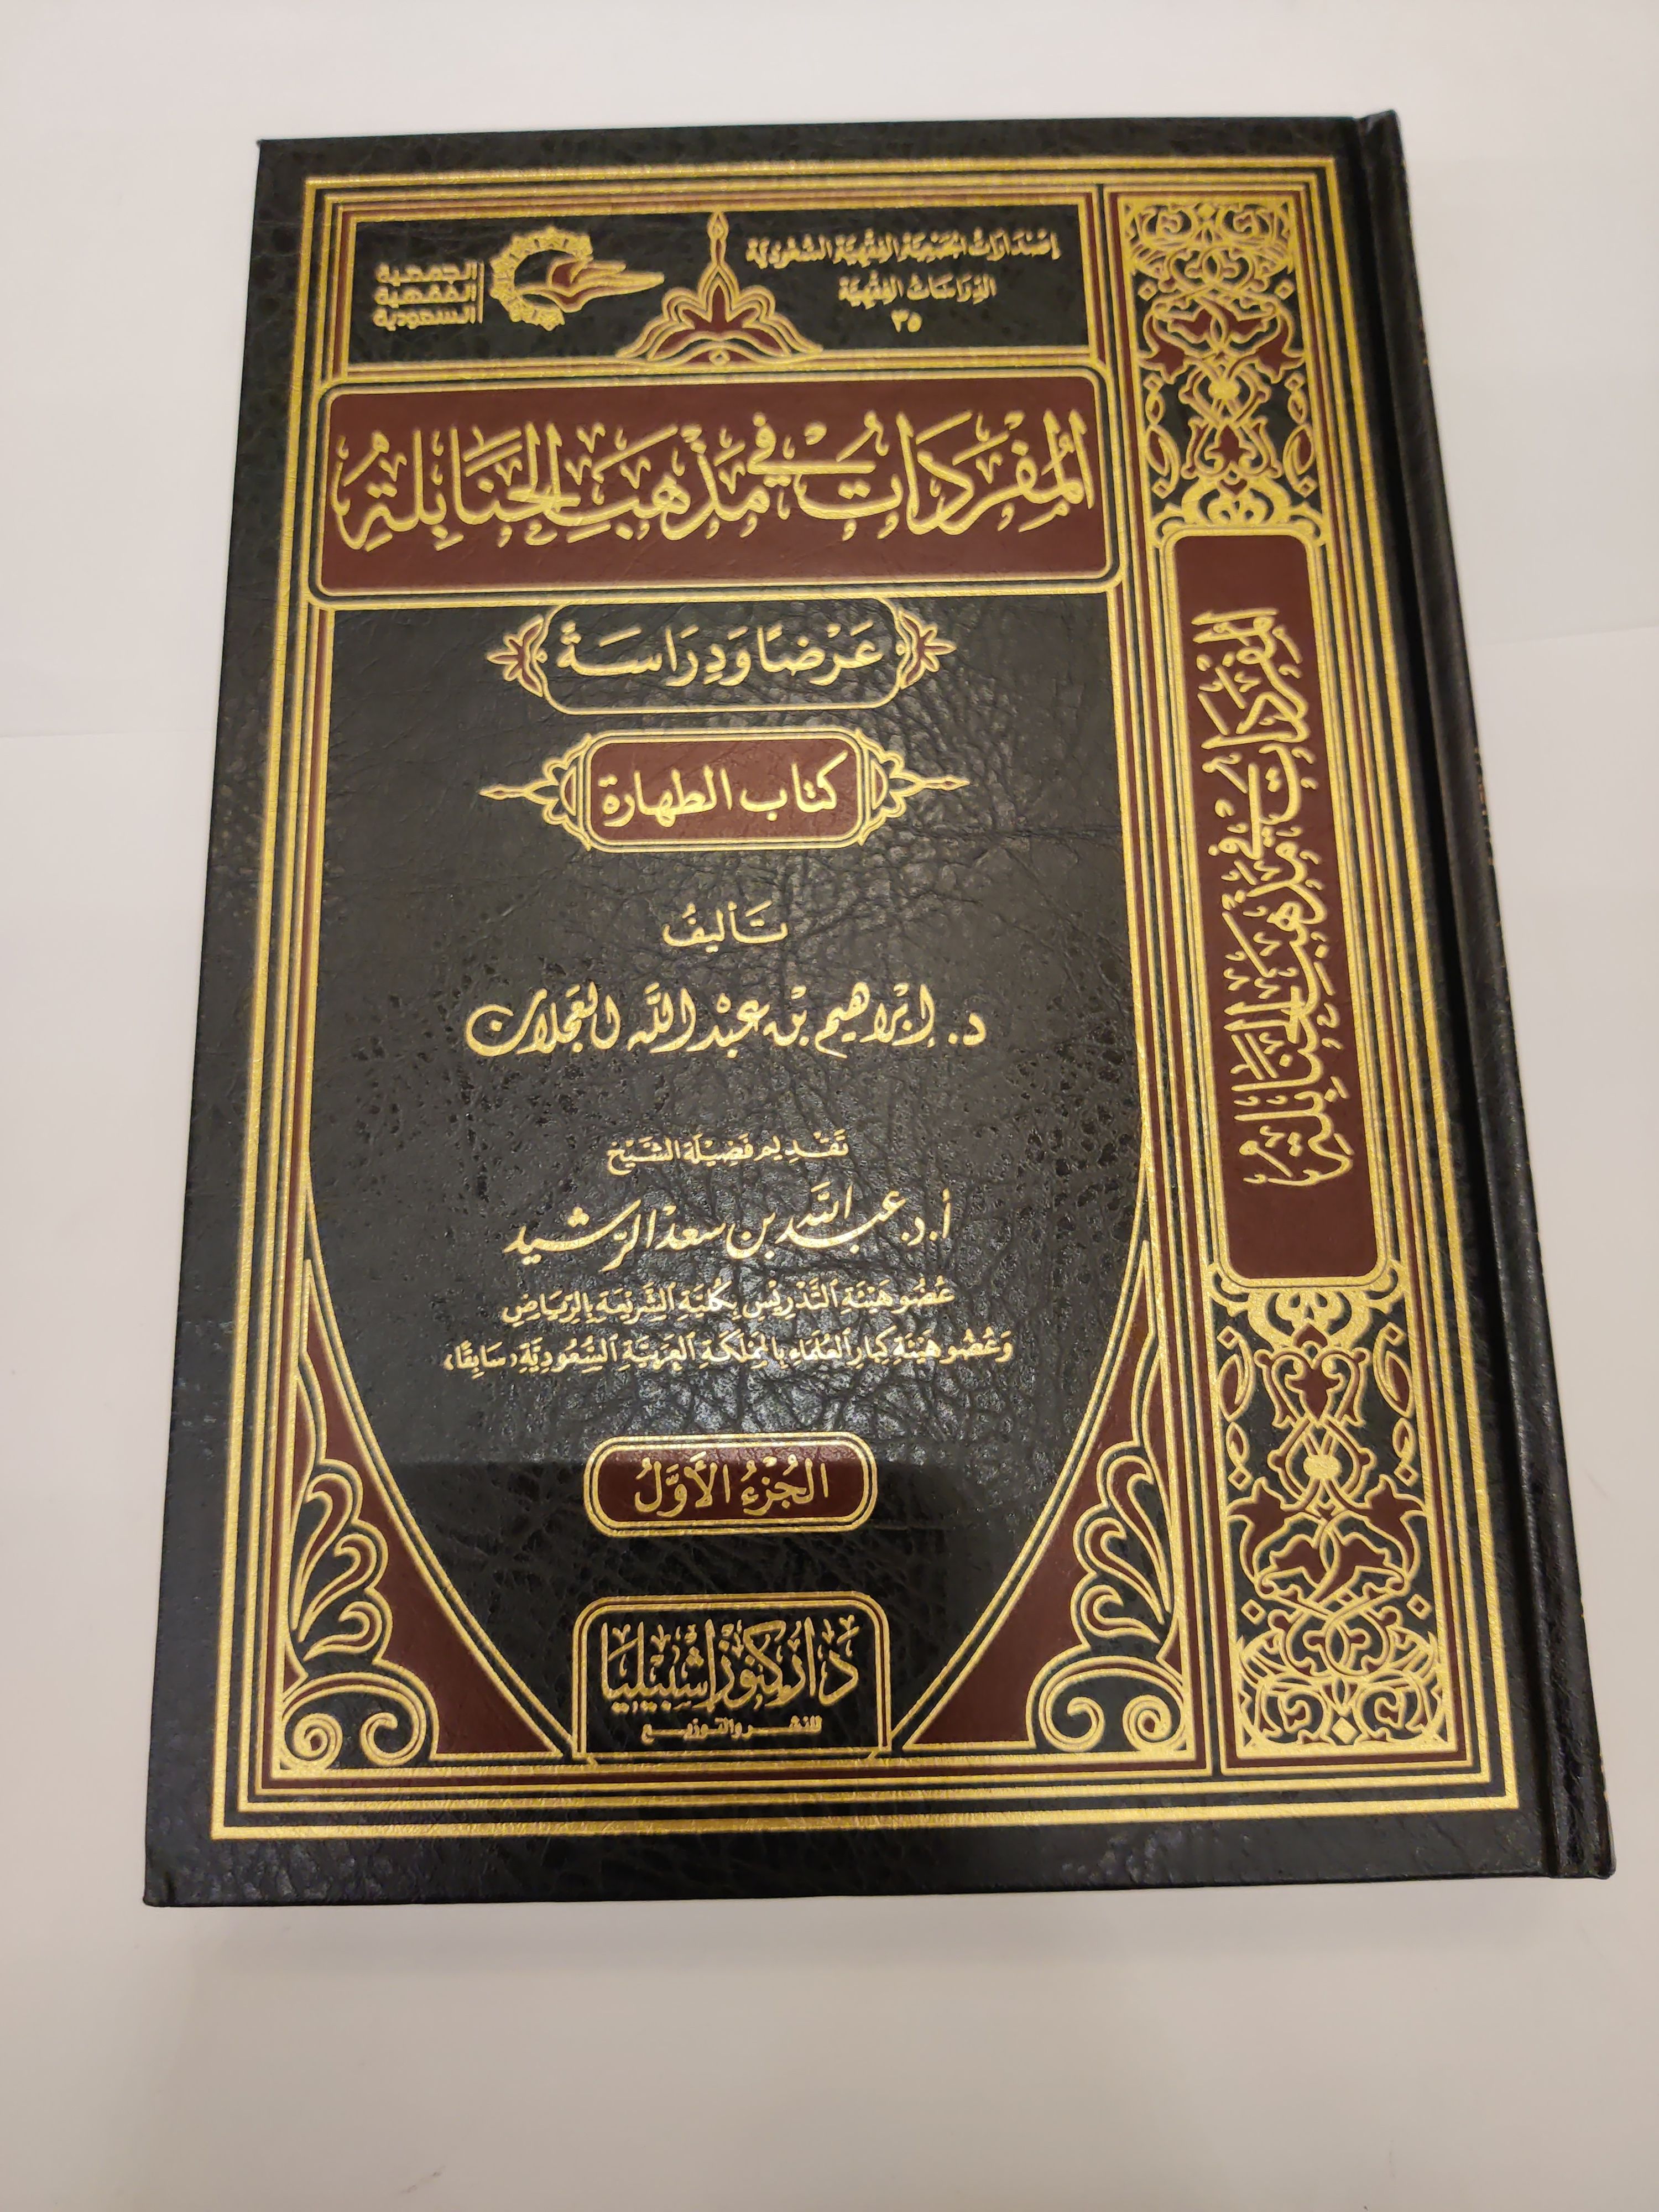 إصدارات الجمعية الفقهية السعودية
الدراسات الفقهية
٣٥
الجمعية
الفقهية
السعودية
المُفْرَدَاتُ فِي مَذْهَبِ الحَنَابِلَةِ
عَرْضًا وَدِرَاسَةً
كتاب الطهارة
تَأليفُ
د. إبْرَاهِيم بْن عَبْد اللَّه العَجلان
تَقْدِيم فَضِيْلَة الشَّيْخ
أ.د. عبد اللَّه بن سعد الرّشيد
عُضُو هَيْئَةِ التَّدْرِيْسِ بِكُلِّيَّةِ الشَّرِيْعَةِ بِالرِّيَاضِ
وَعُضُو هَيْئَةِ كِبَارِ العُلَمَاءِ بِالمَمْلَكَةِ العَرَبِيَّةِ السُّعُوْدِيَّةِ (سَابِقًا)
الجُزْءُ الأَوَّلُ
دَار كنُوز إشْبِيليَا
للنشر والتوزيع
المُفْرَدَاتُ فِي مَذْهَبِ الحَنَابِلَةِ